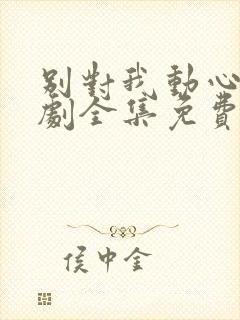 別對我動心
劇全集免費
侯中金